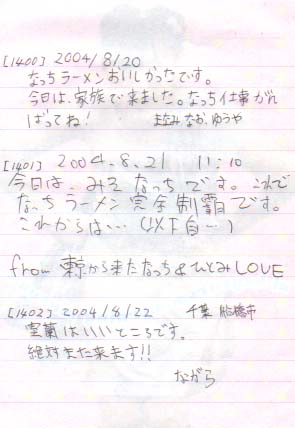 [1400] 2004/8/20
なっちラーメンおいしかったです。
今日は、家族で来ました。なっち仕事がん
ばってね! まなみ なお、ゆうや
[1401] 2004.8.21 11:10
今日は、みそなっちです。これで
なっちラーメン完全制覇です。
これからは…(以下自…)
from 東京から来たなっち&ひとみLOVE
[1402] 2004/8/22 千葉 船橋市
室蘭はいいところです。
絶対また来ます!!
ながら